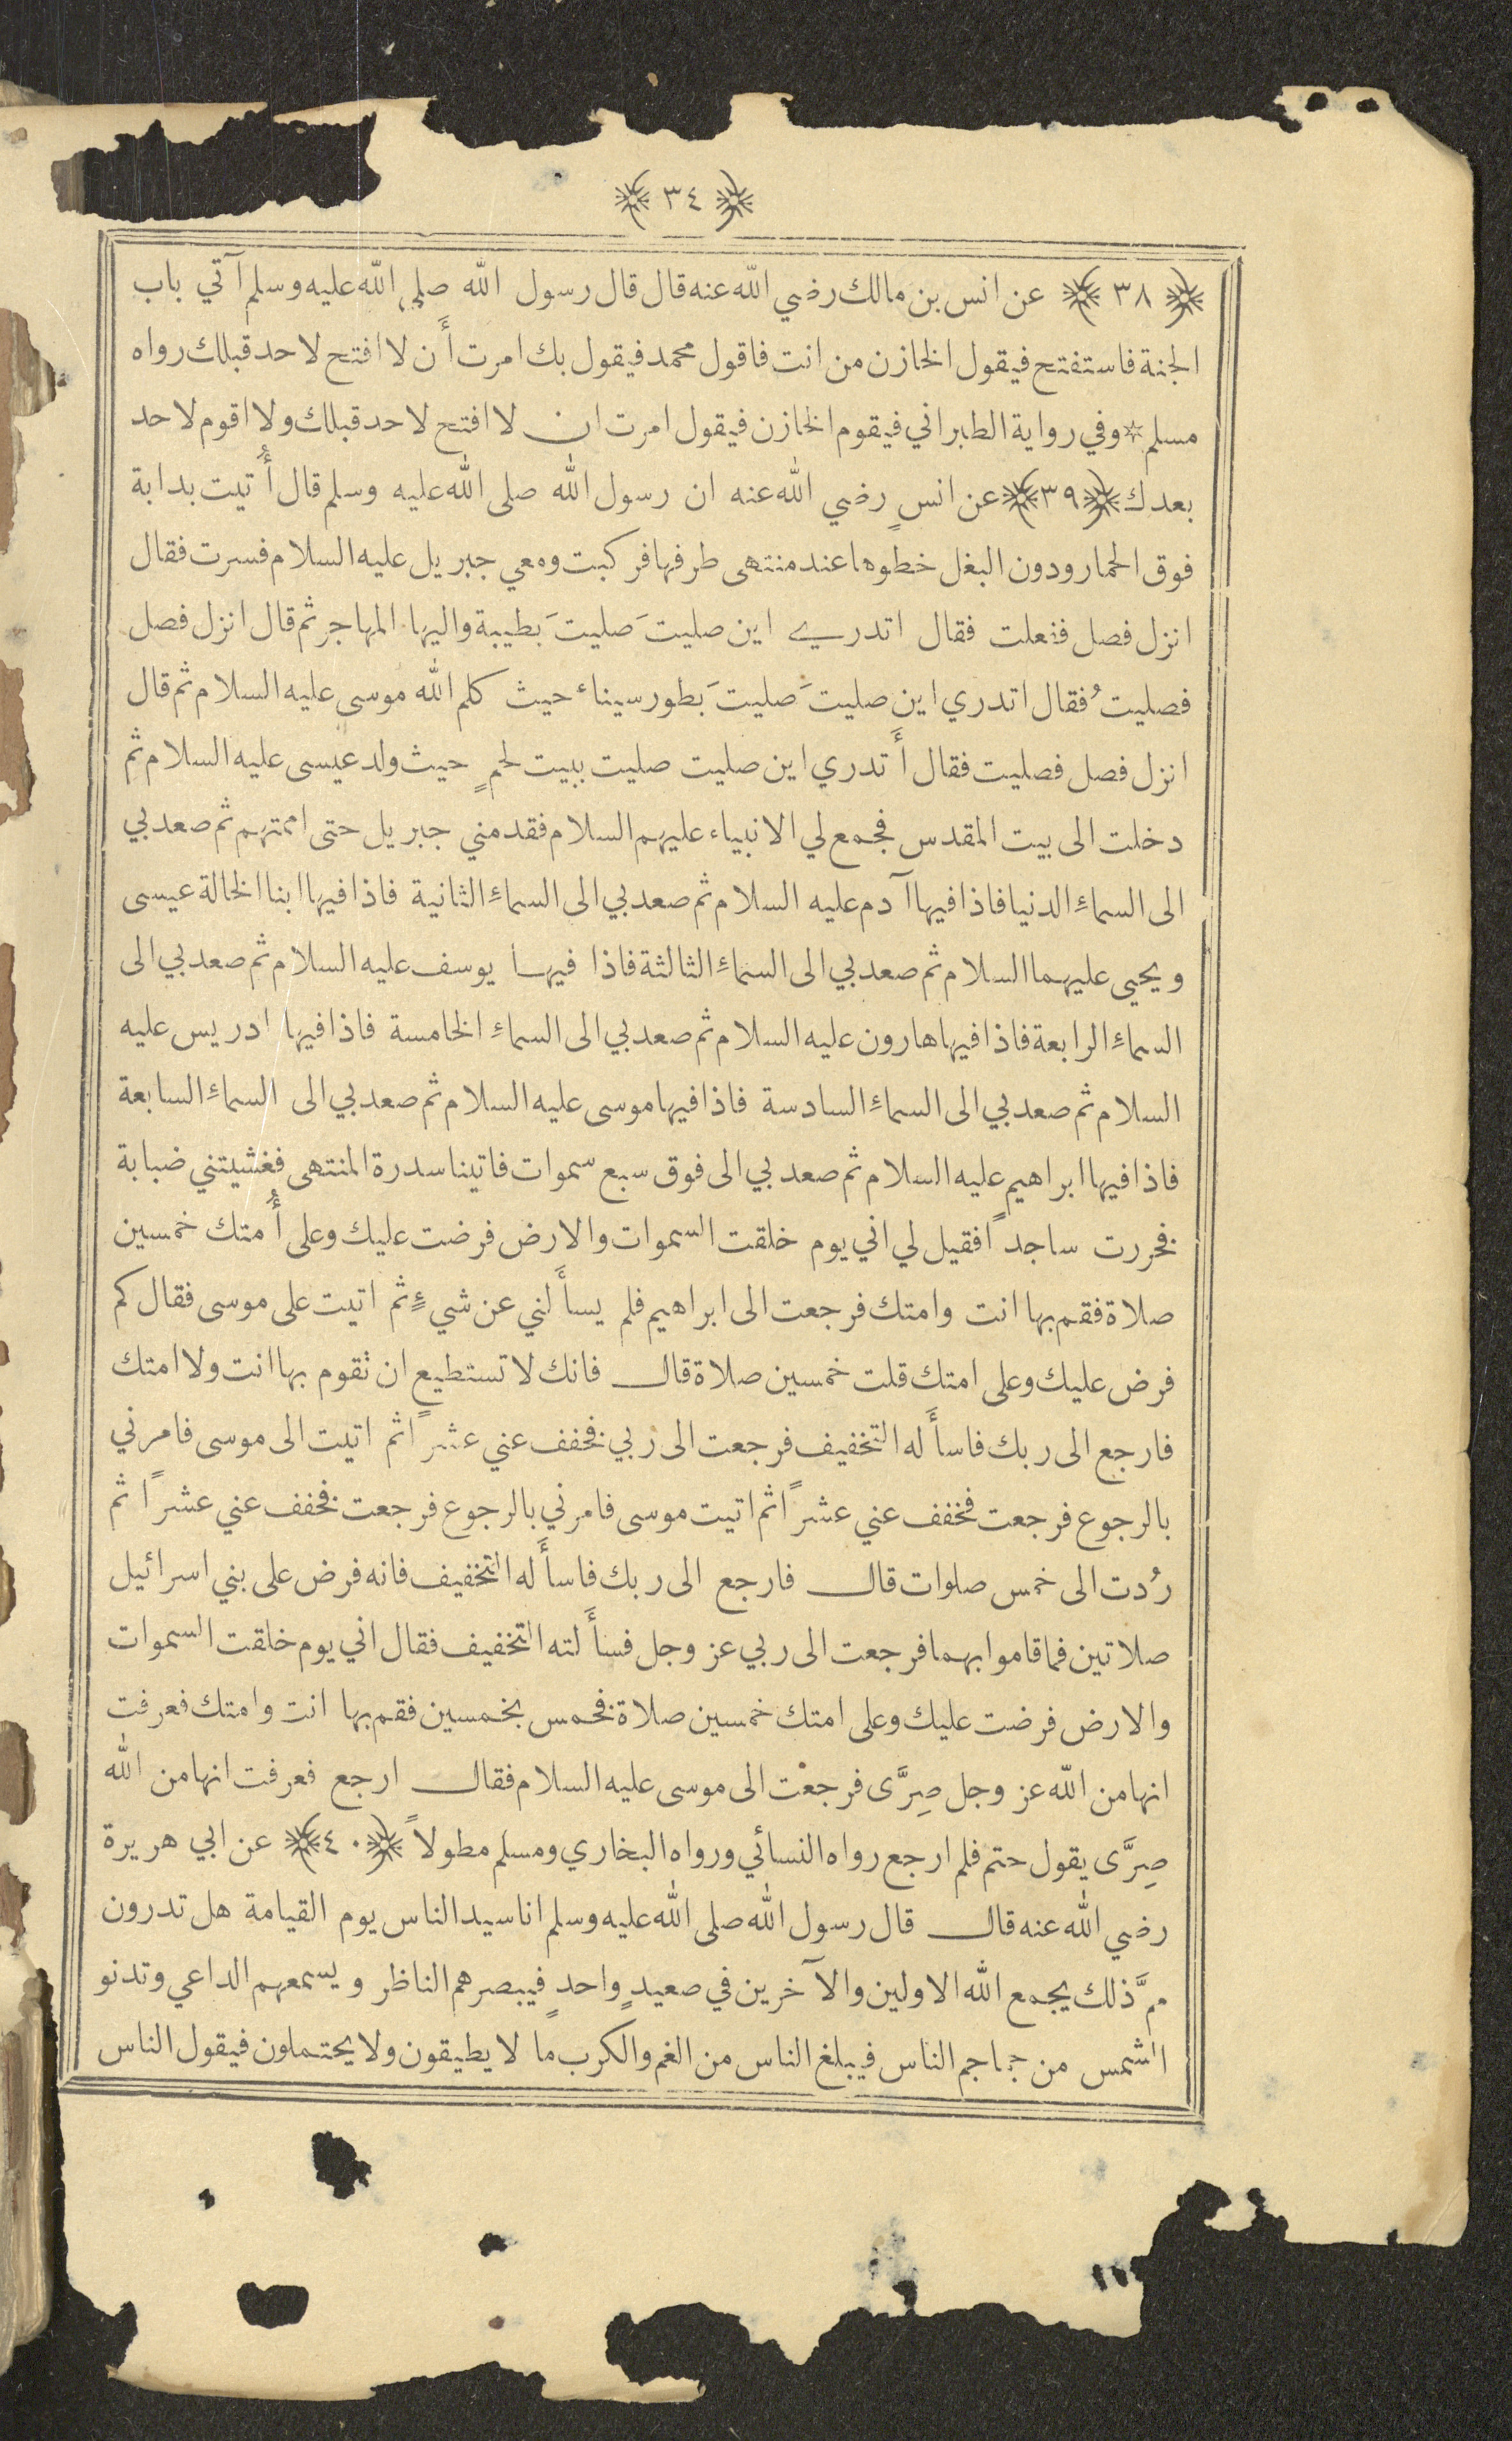 ﴿ ٣٤ ﴾
﴿ ٣٨ ﴾ عن انس بن مالك رضي الله عنه قال قال رسول الله صلى الله عليه وسلم آتي باب
الجنة فاستفتح فيقول الخازن من انت فاقول محمد فيقول بك امرت أَن لا افتح لاحد قبلك رواه
مسلم * وفي رواية الطبراني فيقوم الخازن فيقول امرت ان لا افتح لاحد قبلك ولا اقوم لاحد
بعدك ﴿ ٣٩ ﴾ عن انسٍ رضي الله عنه ان رسول الله صلى الله عليه وسلم قال أُتيت بدابة
فوق الحمار ودون البغل خطوها عند منتهى طرفها فركبت ومعي جبريل عليه السلام فسرت فقال
انزل فصل ففعلت فقال اتدري اين صليتَ صليتَ بطيبة واليها المهاجر ثم قال انزل فصل
فصليتُ فقال اتدري اين صليتَ صليتَ بطور سيناء حيث كلم الله موسى عليه السلام ثم قال
انزل فصل فصليت فقال أَتدري اين صليت صليت ببيت لحمٍ حيث ولد عيسى عليه السلام ثم
دخلت الى بيت المقدس فجمع لي الانبياء عليهم السلام فقدمني جبريل حتى اممتهم ثم صعد بي
الى السماءِ الدنيا فاذا فيها آدم عليه السلام ثم صعد بي الى السماءِ الثانية فاذا فيها ابنا الخالة عيسى
ويحيى عليهما السلام ثم صعد بي الى السماءِ الثالثة فاذا فيها يوسف عليه السلام ثم صعد بي الى
السماءِ الرابعة فاذا فيها هارون عليه السلام ثم صعد بي الى السماءِ الخامسة فاذا فيها ادريس عليه
السلام ثم صعد بي الى السماءِ السادسة فاذا فيها موسى عليه السلام ثم صعد بي الى السماءِ السابعة
فاذا فيها ابراهيم عليه السلام ثم صعد بي الى فوق سبع سموات فاتينا سدرة المنتهى فغشيتني ضبابة
فخررت ساجداً فقيل لي اني يوم خلقت السموات والارض فرضت عليك وعلى أُمتك خمسين
صلاة فقم بها انت وامتك فرجعت الى ابراهيم فلم يسأَلني عن شيءٍ ثم اتيت على موسى فقال كم
فرض عليك وعلى امتك قلت خمسين صلاة قال فانك لا تستطيع ان تقوم بها انت ولا امتك
فارجع الى ربك فاسأَله التخفيف فرجعت الى ربي فخفف عني عشراً ثم اتيت الى موسى فامرني
بالرجوع فرجعت فخفف عني عشراً ثم اتيت موسى فامرني بالرجوع فرجعت فخفف عني عشراً ثم
رُدت الى خمس صلوات قال فارجع الى ربك فاسأَله التخفيف فانه فرض على بني اسرائيل
صلاتين فما قاموا بهما فرجعت الى ربي عز وجل فسأَلته التخفيف فقال اني يوم خلقت السموات
والارض فرضت عليك وعلى امتك خمسين صلاة فخمس بخمسين فقم بها انت وامتك فعرفت
انها من الله عز وجل صِرَّى فرجعْت الى موسى عليه السلام فقال ارجع فعرفت انها من الله
صِرَّى يقول حتم فلم ارجع رواه النسائي ورواه البخاري ومسلم مطولاً ﴿ ٤٠ ﴾ عن ابي هريرة
رضي الله عنه قال قال رسول الله صلى الله عليه وسلم انا سيد الناس يوم القيامة هل تدرون
ممَّ ذلك يجمع الله الاولين والآخرين في صعيدٍ واحدٍ فيبصرهم الناظر ويسمعهم الداعي وتدنو
الشمس من جماجم الناس فيبلغ الناس من الغم والكرب ما لا يطيقون ولا يحتملون فيقول الناس